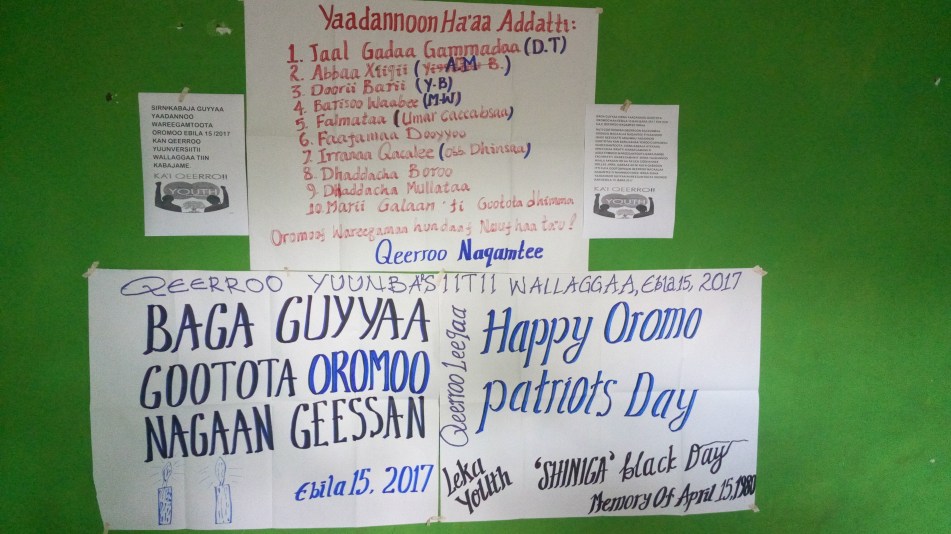 Yaadannoon Ha'aa Addatti:
1. Jaal Gadaa Gammadaa (D.T)
2. Abbaa Xiiqii (A.M B.)
3. Doorii Barii (Y.B)
4. Barisoo Waabee (M.W)
5. Falmataa (Umar Caccabsaa)
6. Faajamaa Dooyyoo
7. Irranaa Qacalee (Obb. Dhinsaa)
8. Dhaddacha Boroo
9. Dhaddacha Mullataa
10. Marii Galaan fi Gootota dhimma
Oromoof Wareegamaa hundaaf Nuuf haa ta'u!
Qeerroo Naqamtee
SIRNI KABAJA GUYYAA
YAADANNOO
WAREEGAMTOOTA
OROMOO EBILA 15 /2017
KAN QEERROO
YUUNVERSIITII
WALLAGGAA TIIN
KABAJAME.
KA'I QEERRO!!
YOUTH
KA'I QEERRO!!
YOUTH
QEERROO YUUNBA'SIITII WALLAGGAA, Ebila 15, 2017
BAGA GUYYAA
GOOTOTA OROMOO
NAGAAN GEESSAN
Ebila 15, 2017
Qeerroo Leeqaa
Happy Oromo
patriots Day
Leka
Youth
'SHINIGA' black Day
Memory Of April 15, 1980